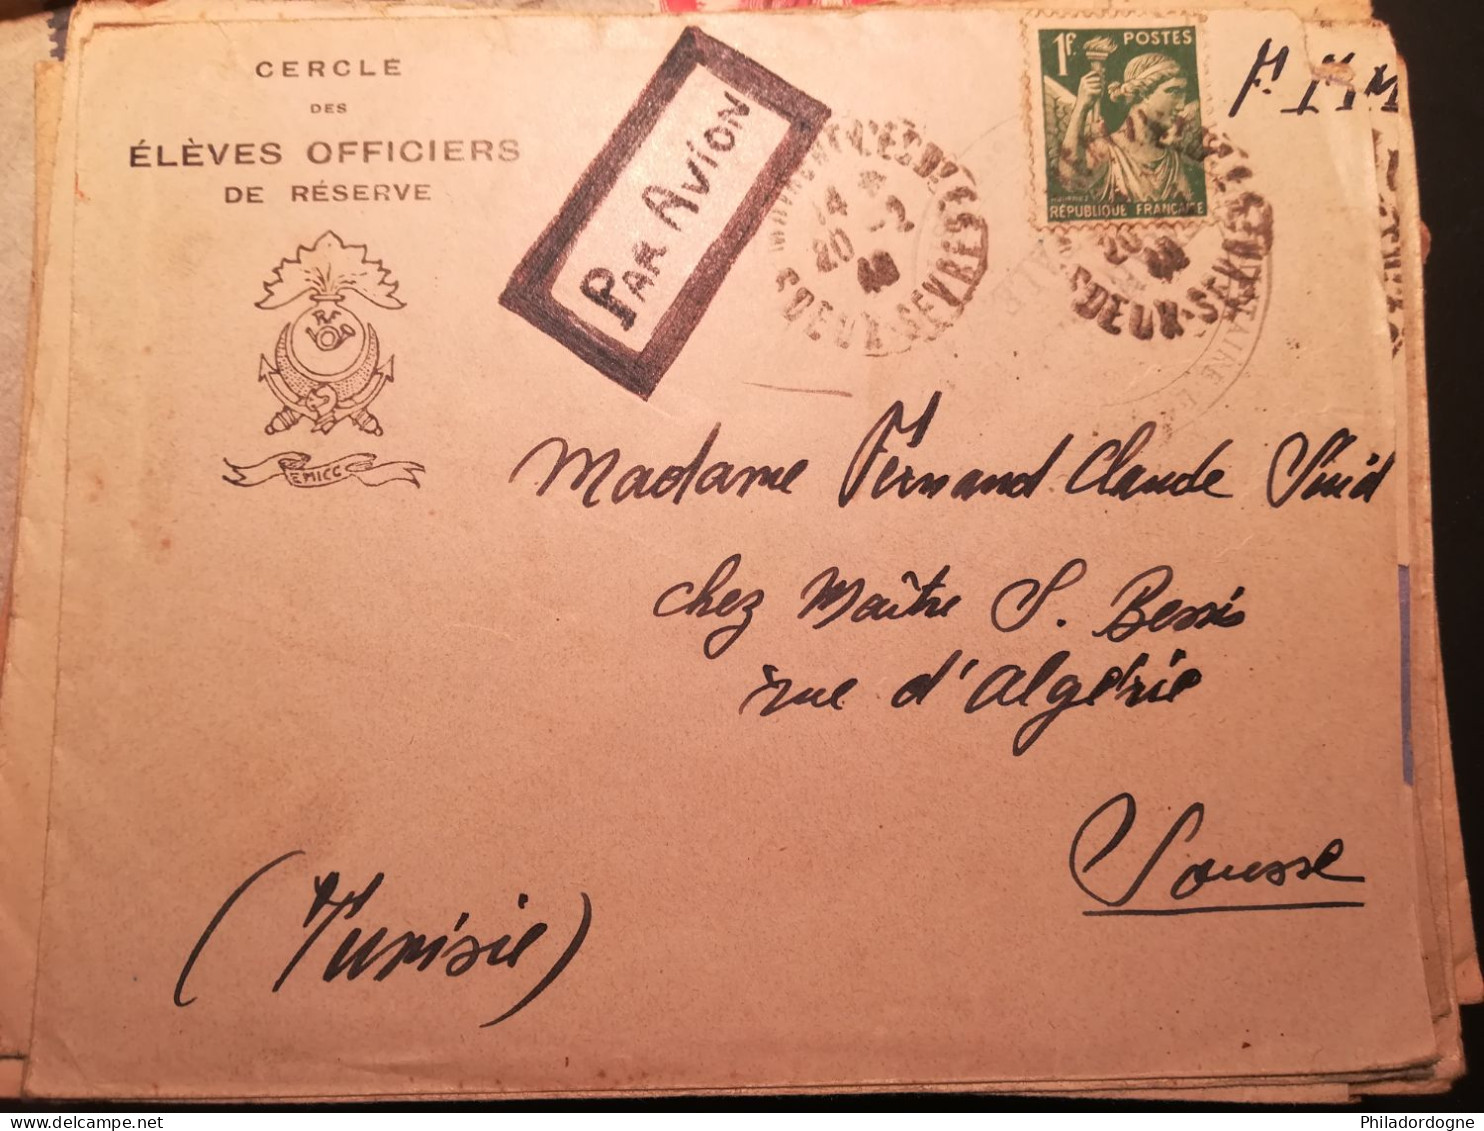 CERCLE
DES
ÉLÈVES OFFICIERS
DE RÉSERVE
EMICC
PAR AVION
1F. POSTES
RÉPUBLIQUE FRANÇAISE
14
20 -2
40
DEUX-SEVRES
DEUX-SEVRES
F. M
Madame Fernand Claude
chez Maître S. Bessis
rue d'Algérie
Sousse
(Tunisie)
Philadordogne